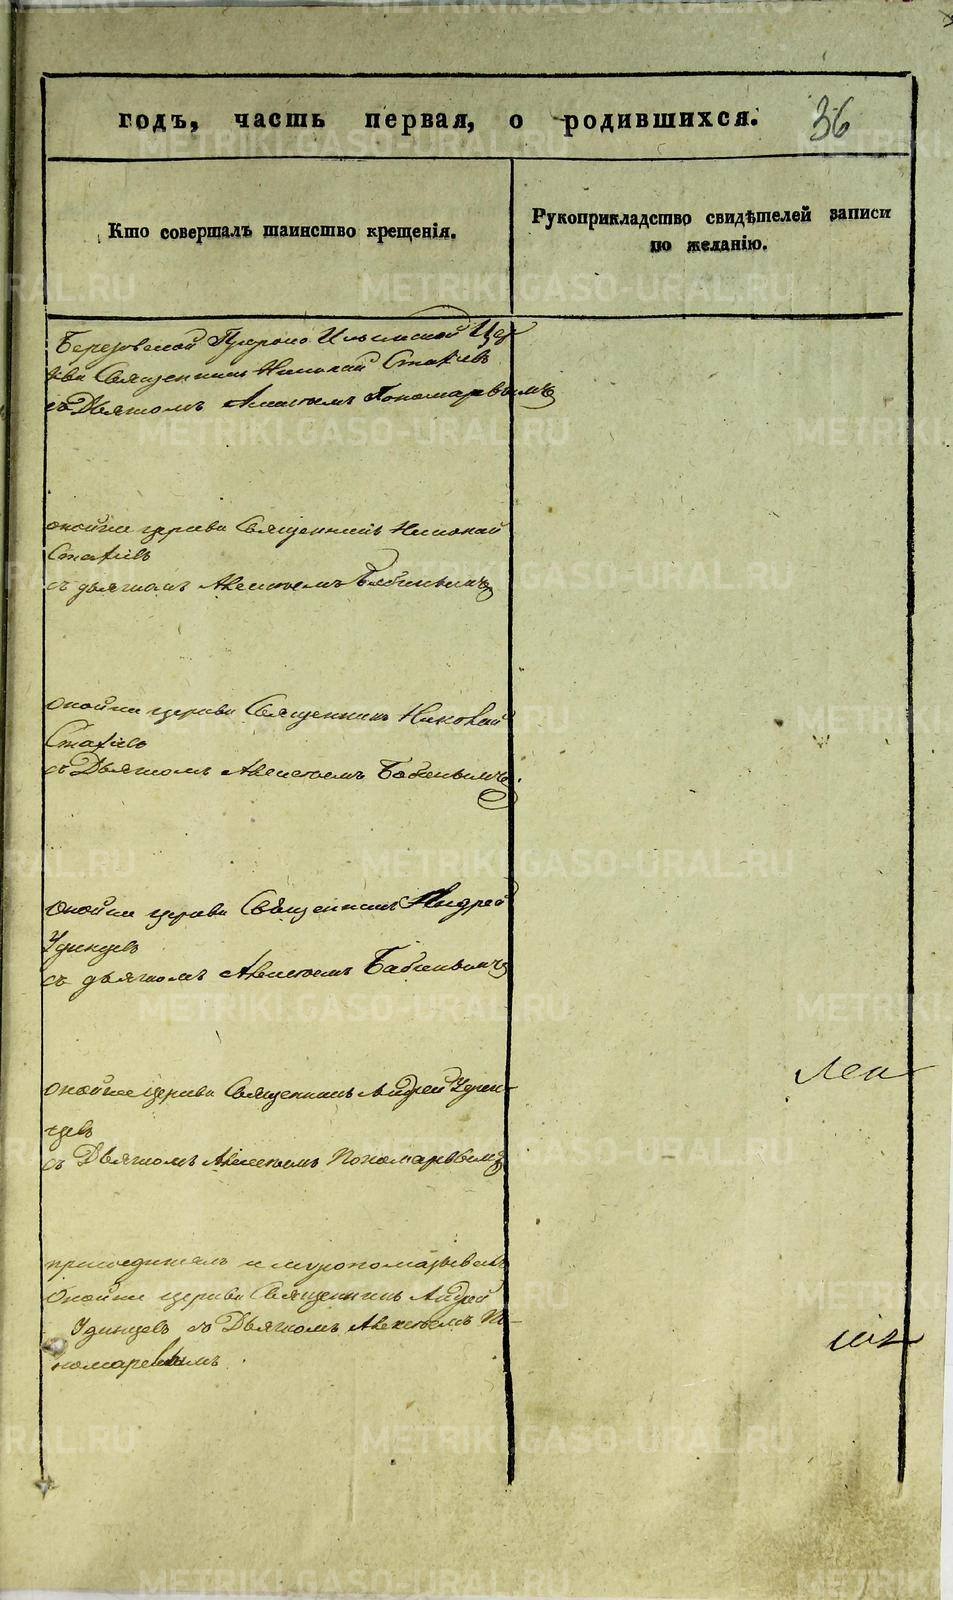 годъ, часть первая, о родившихся. 36
Кто совершалъ таинство крещенія.
Рукоприкладство свидѣтелей записи
по желанію.
Березовской Пророко Ильинской Цер
кви Священникъ Николай Стахіевъ
съ Дьячкомъ Алексѣемъ Пономаревымъ
оной же церкви Священникъ Николай
Стахіевъ
съ дьячкомъ Алексѣемъ Бабинымъ
оной же церкви Священникъ Николай
Стахіевъ
съ Дьячкомъ Алексѣемъ Бабинымъ.
Оной же церкви Священникъ Андрей
Удинцевъ
съ дьячкомъ Алексѣемъ Бабинымъ
оной же церкви Священникъ Андрей Удин-
цевъ
съ Дьячкомъ Алексѣемъ Пономаревымъ
присоединялъ и муропомазывалъ
Оной же церкви Священникъ Андрей
Удинцевъ съ Дьячкомъ Алексѣемъ По-
номаревымъ
METRIKI.GASO-URAL.RU